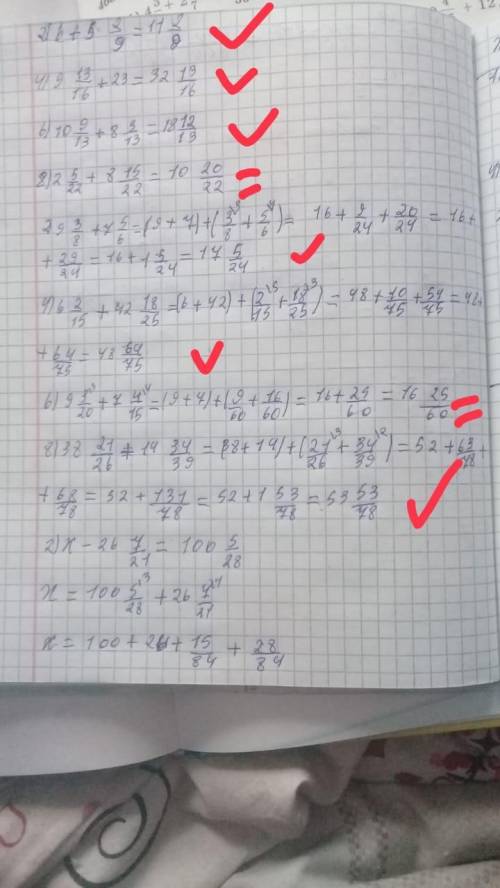 2) 6 + 5 8/9 = 11 8/9
4) 9 13/16 + 23 = 32 13/16
6) 10 9/13 + 8 3/13 = 18 12/13
8) 2 5/22 + 8 15/22 = 10 20/22
2 9 3/8 + 7 5/6 = (9 + 7) + (3/8 + 5/6) = 16 + 9/24 + 20/24 = 16 +
+ 29/24 = 16 + 1 5/24 = 17 5/24
4) 6 2/15 + 42 18/25 = (6 + 42) + (2/15 + 18/25) = 48 + 10/75 + 54/75 = 48
+ 64/75 = 48 64/75
6) 9 3/20 + 7 4/15 = (9 + 7) + (9/60 + 16/60) = 16 + 25/60 = 16 25/60
8) 38 21/26 + 14 34/39 = (38 + 14) + (21/26 + 34/39) = 52 + 63/78 +
+ 68/78 = 52 + 131/78 = 52 + 1 53/78 = 53 53/78
2) x - 26 7/21 = 100 5/28
x = 100 5/28 + 26 7/21
x = 100 + 26 + 15/84 + 28/84